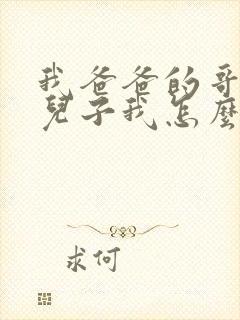 我爸爸的哥
兒子我怎麼
求何